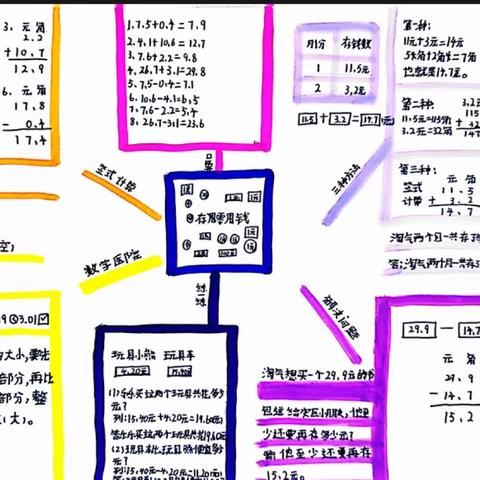 3、元 角
2.3
+10.7
12.9
6、元角
17.8
- 0.4
17.4
1.7.5+0.4=7.9
2.4.1+10.6=12.7
3.7.6+2.2=9.8
4.26.7+3.1=29.8
5.7.5-0.4=7.1
6.10.6-4.1=6.5
7.7.6-2.2=5.4
8.26.7-3.1=23.6
月份 存钱数
1 11.5元
2 3.2元
11.5+3.2=14.7(元)
第一种:
11元+3元=14元
5角+2角=7角
也就是14.7元。
第二种:
11.5元=115角
3.2元=32角
第三种:
元 角
竖式 11.5
计算 + 3.2
14.7
淘气两个月一共存
答:淘气两个月一共存
竖式计算
口算
三种方法
存零用钱
数学医院
练一练
解决问题
3.01
大小,要先
部分,再比
部分,整
大)。
玩具小熊 玩具车
4.20元 15.40元
列:15.40元+4.20元=19.60元
列:15.40元-4.20元=11.20元
淘气想买一个29.9元的
少还要再存多少元?
答:他至少还要再存
15.2元。
29.9 - 14.7
元 角
29.9
- 14.7
15.2